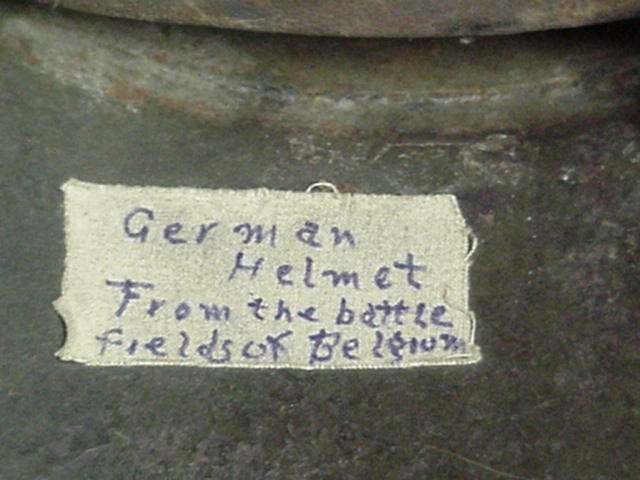 German
Helmet
From the battle
fields of Belgium